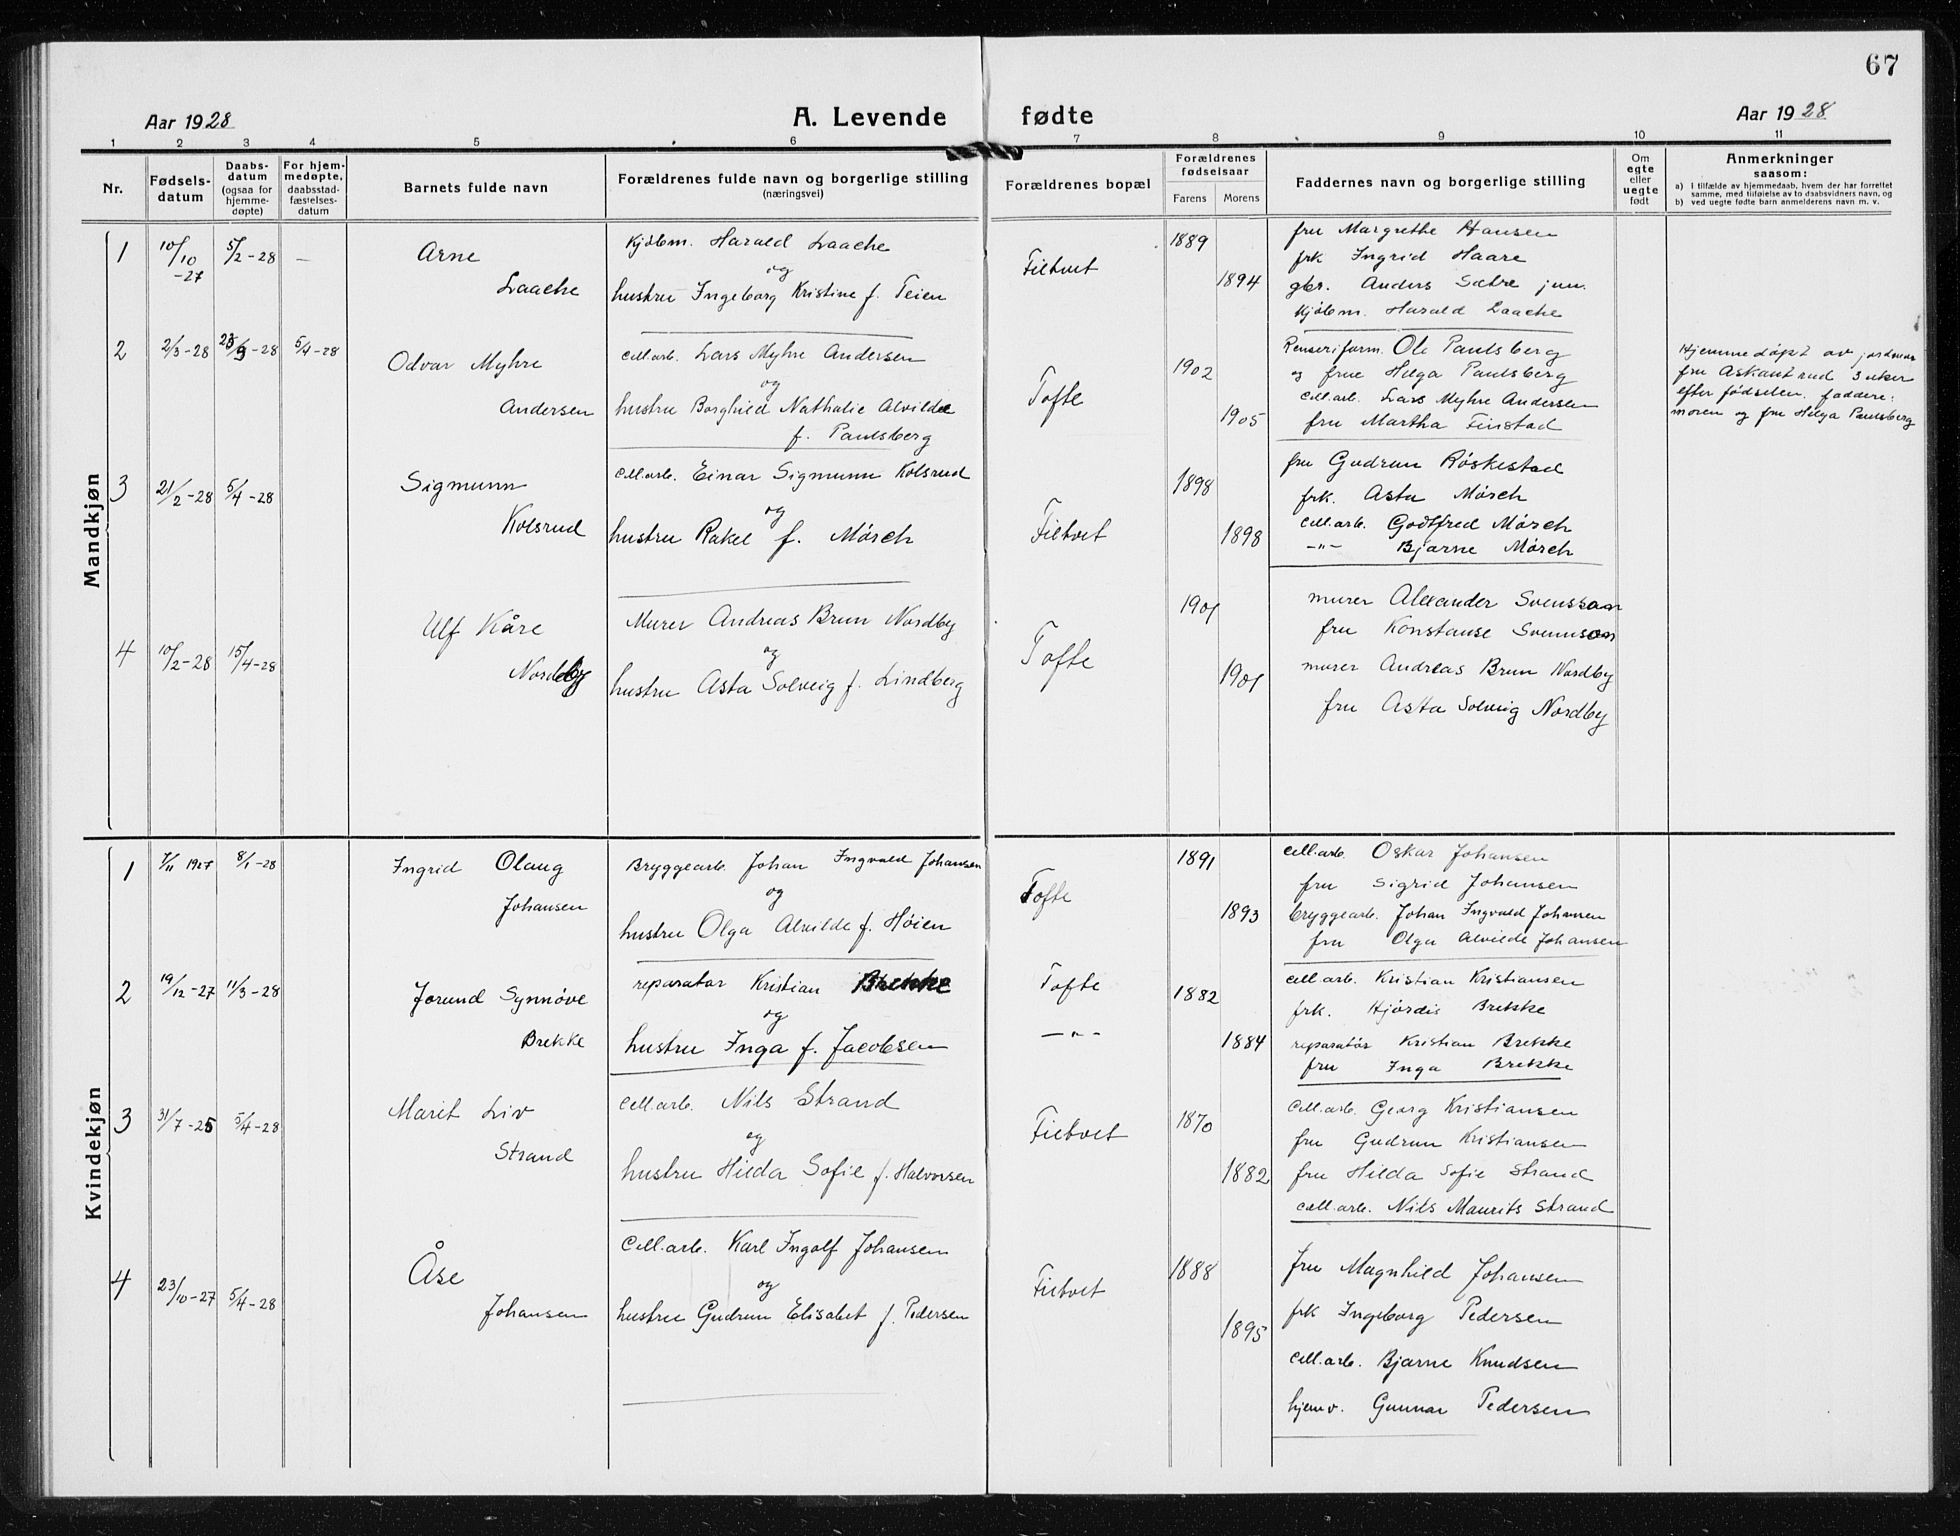 67
Aar 1928
A. Levende fødte
Aar 1928
1 2 3 4 5 6 7 8 9 10 11
Nr.
Fødsels-
datum
Daabs-
datum
(ogsaa for
hjemme-
døpte)
For hjem-
medøpte,
daabsstad-
fæstelses-
datum
Barnets fulde navn
Forældrenes fulde navn og borgerlige stilling
(næringsvei)
Forældrenes bopæl
Forældrenes
fødselsaar
Farens Morens
Faddernes navn og borgerlige stilling
Om
egte
eller
uegte
født
Anmerkninger
saasom:
a) I tilfælde av hjemmedaab, hvem der har forrettet
samme, med tilføielse av to daabsvidners navn, og
b) ved uegte fødte barn anmelderens navn m. v.
Mandkjøn
1
10/10
-27
5/2-28
—
Arne
Laache
Kjøbm. Harald Laache
og
hustru Ingeborg Kristine f. Teien
Filtvet
1889
1894
fru Margrethe Hansen
frk Ingrid Haare
gbr. Anders Sætre jun.
Kjøbm. Harald Laache
2
2/3-28
23/3-28
5/4-28
Odvar Myhre
Andersen
Cell.arb. Lars Myhre Andersen
og
hustru Borghild Nathalie Alvilde
f. Paulsberg
Tofte
1902
1905
Renseriform. Ole Paulsberg
og frue Helga Paulsberg
Cell.arb. Lars Myhre Andersen
fru Martha Finstad
Hjemmedøpt av jordmor
fru Askautrud 3 uker
efter fødselen, faddere:
moren og fru Helga Paulsberg
3
21/2-28
5/4-28
Sigmunn
Kolsrud
Cell.arb. Einar Sigmunn Kolsrud
og
hustru Rakel f. Mørch
Filtvet
1898
1898
fru Gudrun Røskestad
frk. Asta Mørch
Cell.arb. Godtfred Mørch
—"— Bjarne Mørch
4
10/2-28
15/4-28
Ulf Kåre
Nordby
Murer Andreas Brun Nordby
og
hustru Asta Solveig f. Lindberg
Tofte
1901
1901
murer Alexander Svensson
fru Konstanse Svensson
murer Andreas Brun Nordby
fru Asta Solveig Nordby
Kvindekjøn
1
7/11 1927
8/1-28
Ingrid Olaug
Johansen
Bryggearb. Johan Ingvald Johansen
og
hustru Olga Alvilde f. Høien
Tofte
1891
1893
Cell.arb. Oskar Johansen
fru Sigrid Johansen
bryggearb. Johan Ingvald Johansen
fru Olga Alvilde Johansen
2
19/12-27
11/3-28
Jorund Synnøve
Brekke
reparatør Kristian Brekke
og
hustru Inga f. Jacobsen
Tofte
—"—
1882
1884
Cell.arb. Kristian Kristiansen
frk. Hjørdis Brekke
reparatør Kristian Brekke
fru Inga Brekke
3
31/7-25
5/4-28
Marit Liv
Strand
Cell.arb. Nils Strand
og
hustru Hilda Sofie f. Halvorsen
Filtvet
1870
1882
Cell.arb. Georg Kristiansen
fru Gudrun Kristiansen
fru Hilda Sofie Strand
Cell.arb. Nils Maurits Strand
4
23/10-27
5/4-28
Åse
Johansen
Cell.arb. Karl Ingolf Johansen
og
hustru Gudrun Elisabet f. Pedersen
Filtvet
1888
1895
fru Magnhild Johansen
frk Ingeborg Pedersen
Cell.arb. Bjarne Knudsen
hjemv. Gunnar Pedersen